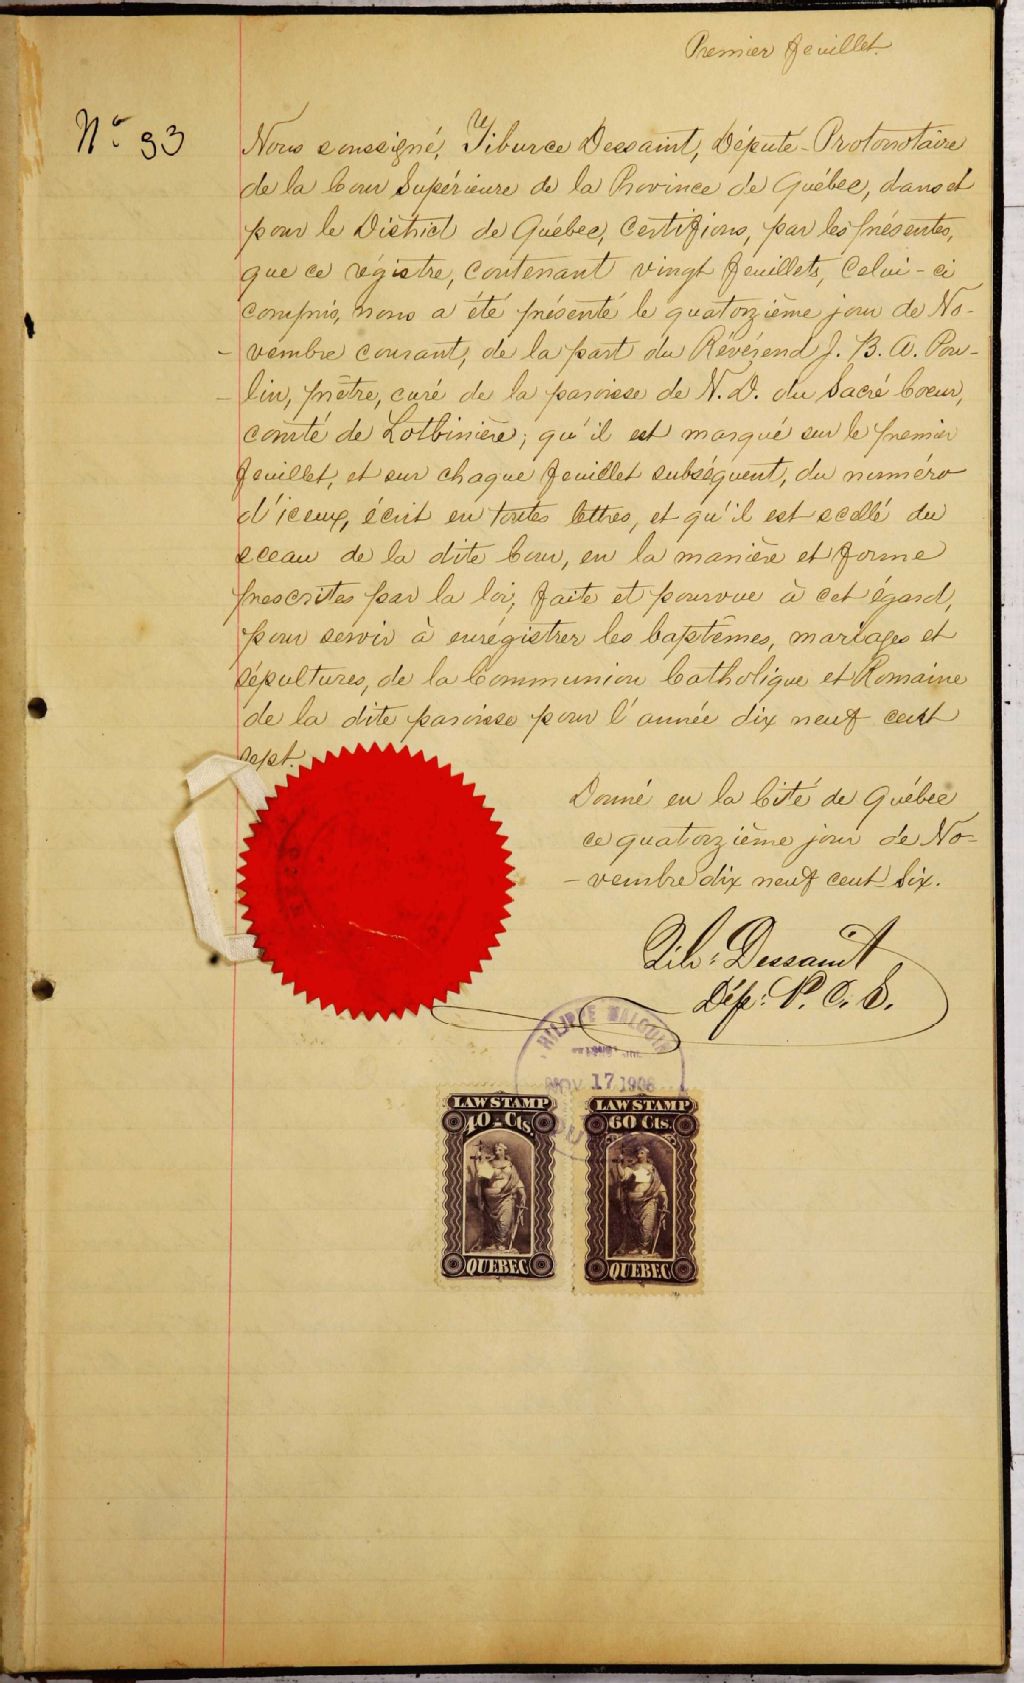 Premier feuillet.
No. 93
Nous soussigné, Tiburce Dessaint, Député-Protonotaire
de la Cour Supérieure de la Province de Québec, dans et
pour le District de Québec, certifions, par les présentes,
que ce régistre, contenant vingt feuillets, celui-ci
compris, nous a été présenté le quatorzième jour de No-
-vembre courant, de la part du Révérend J. B. A. Pou-
-lin, prêtre, curé de la paroisse de N. D. du Sacré Coeur,
comté de Lotbinière; qu'il est marqué sur le premier
feuillet, et sur chaque feuillet subséquent, du numéro
d'iceux, écrit en toutes lettres, et qu'il est scellé du
sceau de la dite Cour, en la manière et forme
prescrites par la loi, faite et pourvue à cet égard,
pour servir à enrégistrer les baptêmes, mariages et
sépultures, de la Communion Catholique et Romaine
de la dite paroisse pour l'année dix neuf cent
sept.
Donné en la Cité de Québec
ce quatorzième jour de No-
-vembre dix neuf cent six.
Tib: Dessaint
Dép: P. C. S.
NOV 17 1906
LAW STAMP
40-Cts.
QUEBEC
LAW STAMP
60 Cts.
QUEBEC